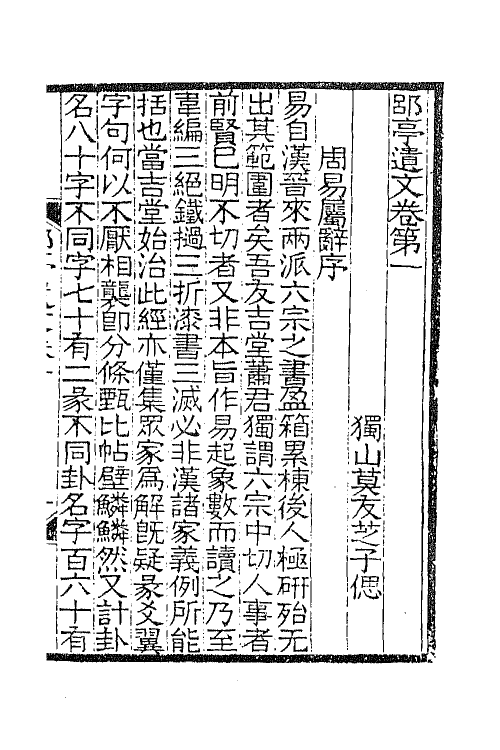 郘亭遺文卷第一
獨山莫友芝子偲
周易屬辭序
易自漢晉來兩派六宗之書盈箱累棟後人極硏殆无
出其範圍者矣吾友吉堂蕭君獨謂六宗中切人事者
前賢已明不切者又非本旨作易起象數而讀之乃至
韋編三絕鐵撾三折漆書三滅必非漢諸家義例所能
括也當吉堂始治此經亦僅集眾家爲解旣疑彖爻翼
字句何以不厭相襲卽分條甄比帖壁鱗鱗然又計卦
名八十字不同字七十有二彖不同卦名字百六十有